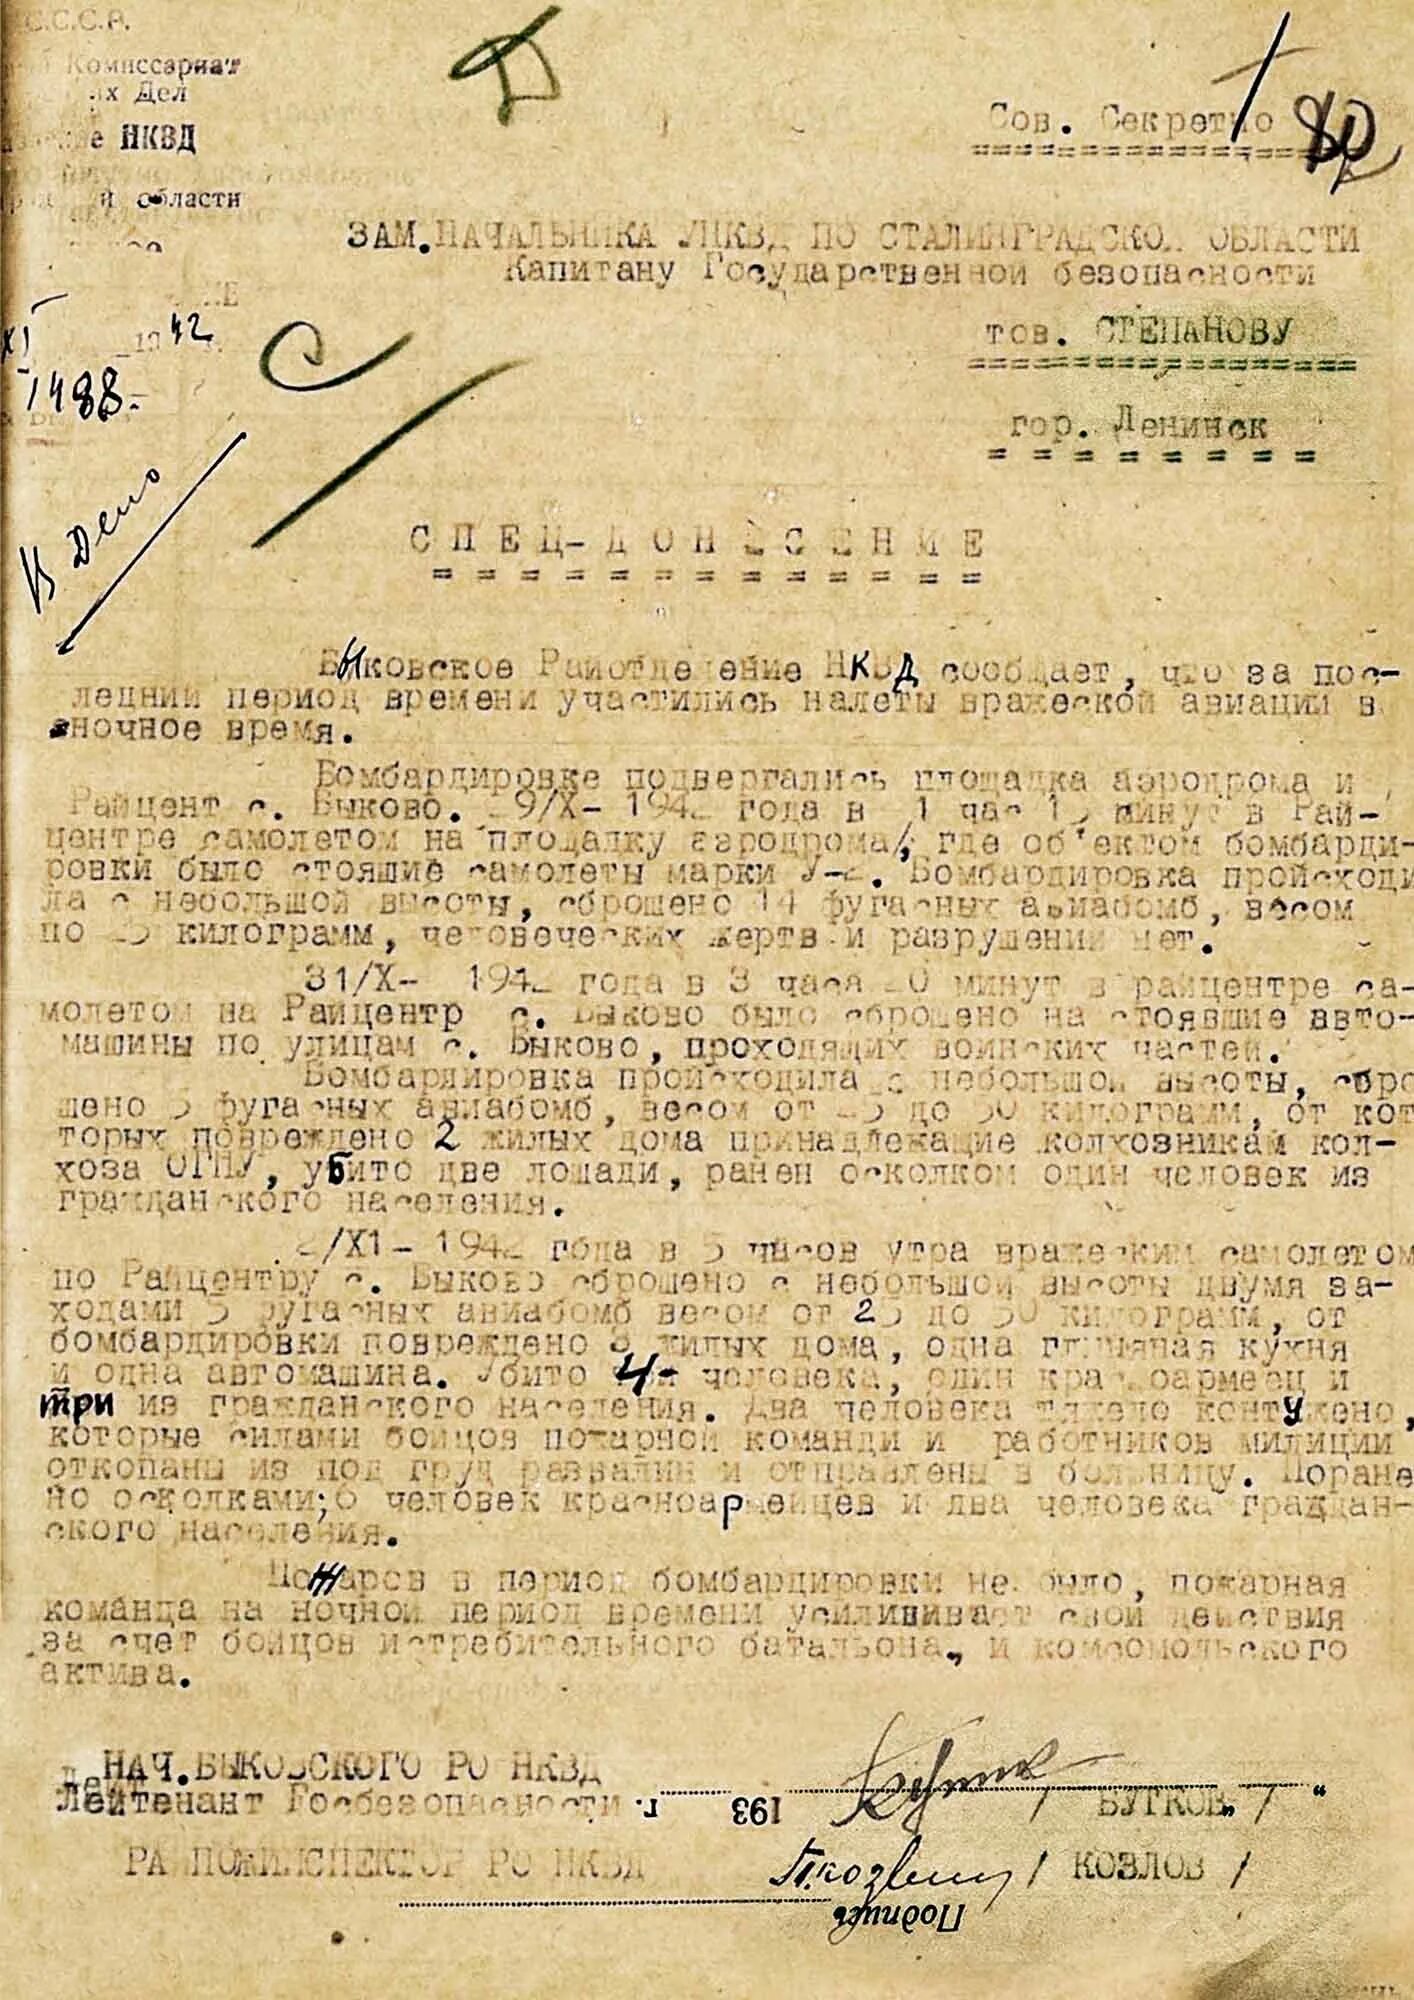 С.С.С.Р.
Комиссариат
их Дел
НКВД
области
1942
XI
1488.
В дело
Сов. Секретно
80
ЗАМ. НАЧАЛЬНИКА УНКВД ПО СТАЛИНГРАДСКОЙ ОБЛАСТИ
Капитану Государственной безопасности
тов. СТЕПАНОВУ
гор. Ленинск
СПЕЦ-ДОНЕСЕНИЕ
Быковское Райотделение НКВД сообщает, что за пос-
ледний период времени участились налеты вражеской авиации в
ночное время.
Бомбардировке подвергались площадка аэродрома и
Райцент с. Быково. 9/X- 1942 года в 1 час минут в Рай-
центре самолетом на площадку аэродрома, где об'ектом бомбарди-
ровки было стоящие самолеты марки У-2. Бомбардировка происходи
ла с небольшой высоты, сброшено 14 фугасных авиабомб, весом
по 25 килограмм, человеческих жертв и разрушений нет.
31/X- 1942 года в 3 часа минут в райцентре са-
молетом на Райцентр с. Быково было сброшено на стоявшие авто-
машины по улицам с. Быково, проходящих воинских частей.
Бомбардировка происходила с небольшой высоты, сбро
шено 5 фугасных авиабомб, весом от 25 до 50 килограмм, от кот
торых повреждено 2 жилых дома принадлежащие колховникам кол-
хоза ОГПУ, убито две лошади, ранен осколком один человек из
гражданского населения.
2/XI- 1942 года в 5 часов утра вражеским самолетом
по Райцентру с. Быково сброшено с небольшой высоты двумя за-
ходами 5 фугасных авиабомб весом от 25 до 50 килограмм, от
бомбардировки повреждено 3 жилых дома, одна глиняная кухня
и одна автомашина. Убито 4- человека, один красноармеец и
три из гражданского населения. Два человека тяжело контужено,
которые силами бойцов пожарной команди и работников милиции
откопаны из под груд развалин и отправлены в больницу. Поране
но осколками; 6 человек красноармейцев и два человека граждан-
ского населения.
Пожаров в период бомбардировки не было, пожарная
команда на ночной период времени усилививает свои действия
за счет бойцов истребительного батальона, и комсомольского
актива.
НАЧ. БЫКОВСКОГО РО НКВД
Лейтенант Госбезопасности
193 г.
/ БУТКОВ /
РАЙПОЖИНСПЕКТОР РО НКВД
П.Козлов / КОЗЛОВ /
Подпись